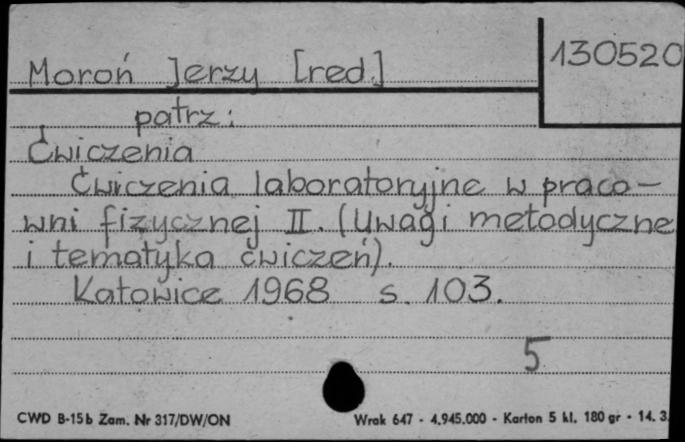 130520
Moroń Jerzy [red.]
patrz:
Ćwiczenia
Ćwiczenia laboratoryjne w praco-
wni fizycznej II. (Uwagi metodyczne
i tematyka ćwiczeń).
Katowice 1968 s. 103.
5
CWD B-15b Zam. Nr 317/DW/ON
Wrak 647 - 4.945.000 - Karton 5 kl. 180 gr - 14. 3.